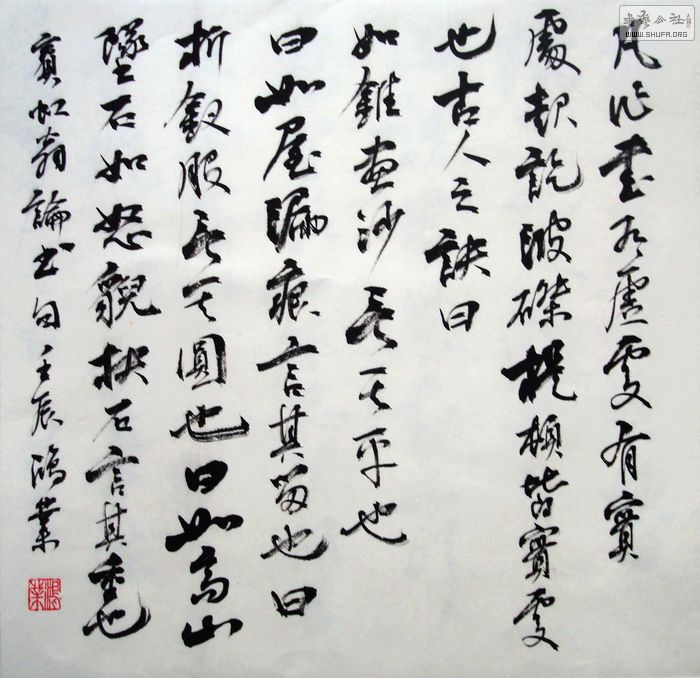 凡作書有虛處有實
處起訖波磔提頓皆實處
也古人之訣曰
如錐畫沙言其平也
曰如屋漏痕言其留也曰
折釵股言其圓也曰如高山
墜石如怒猊抉石言其重也
賓虹翁論書句壬辰鴻業
鴻業
書藝公社
WWW.SHUFA.ORG